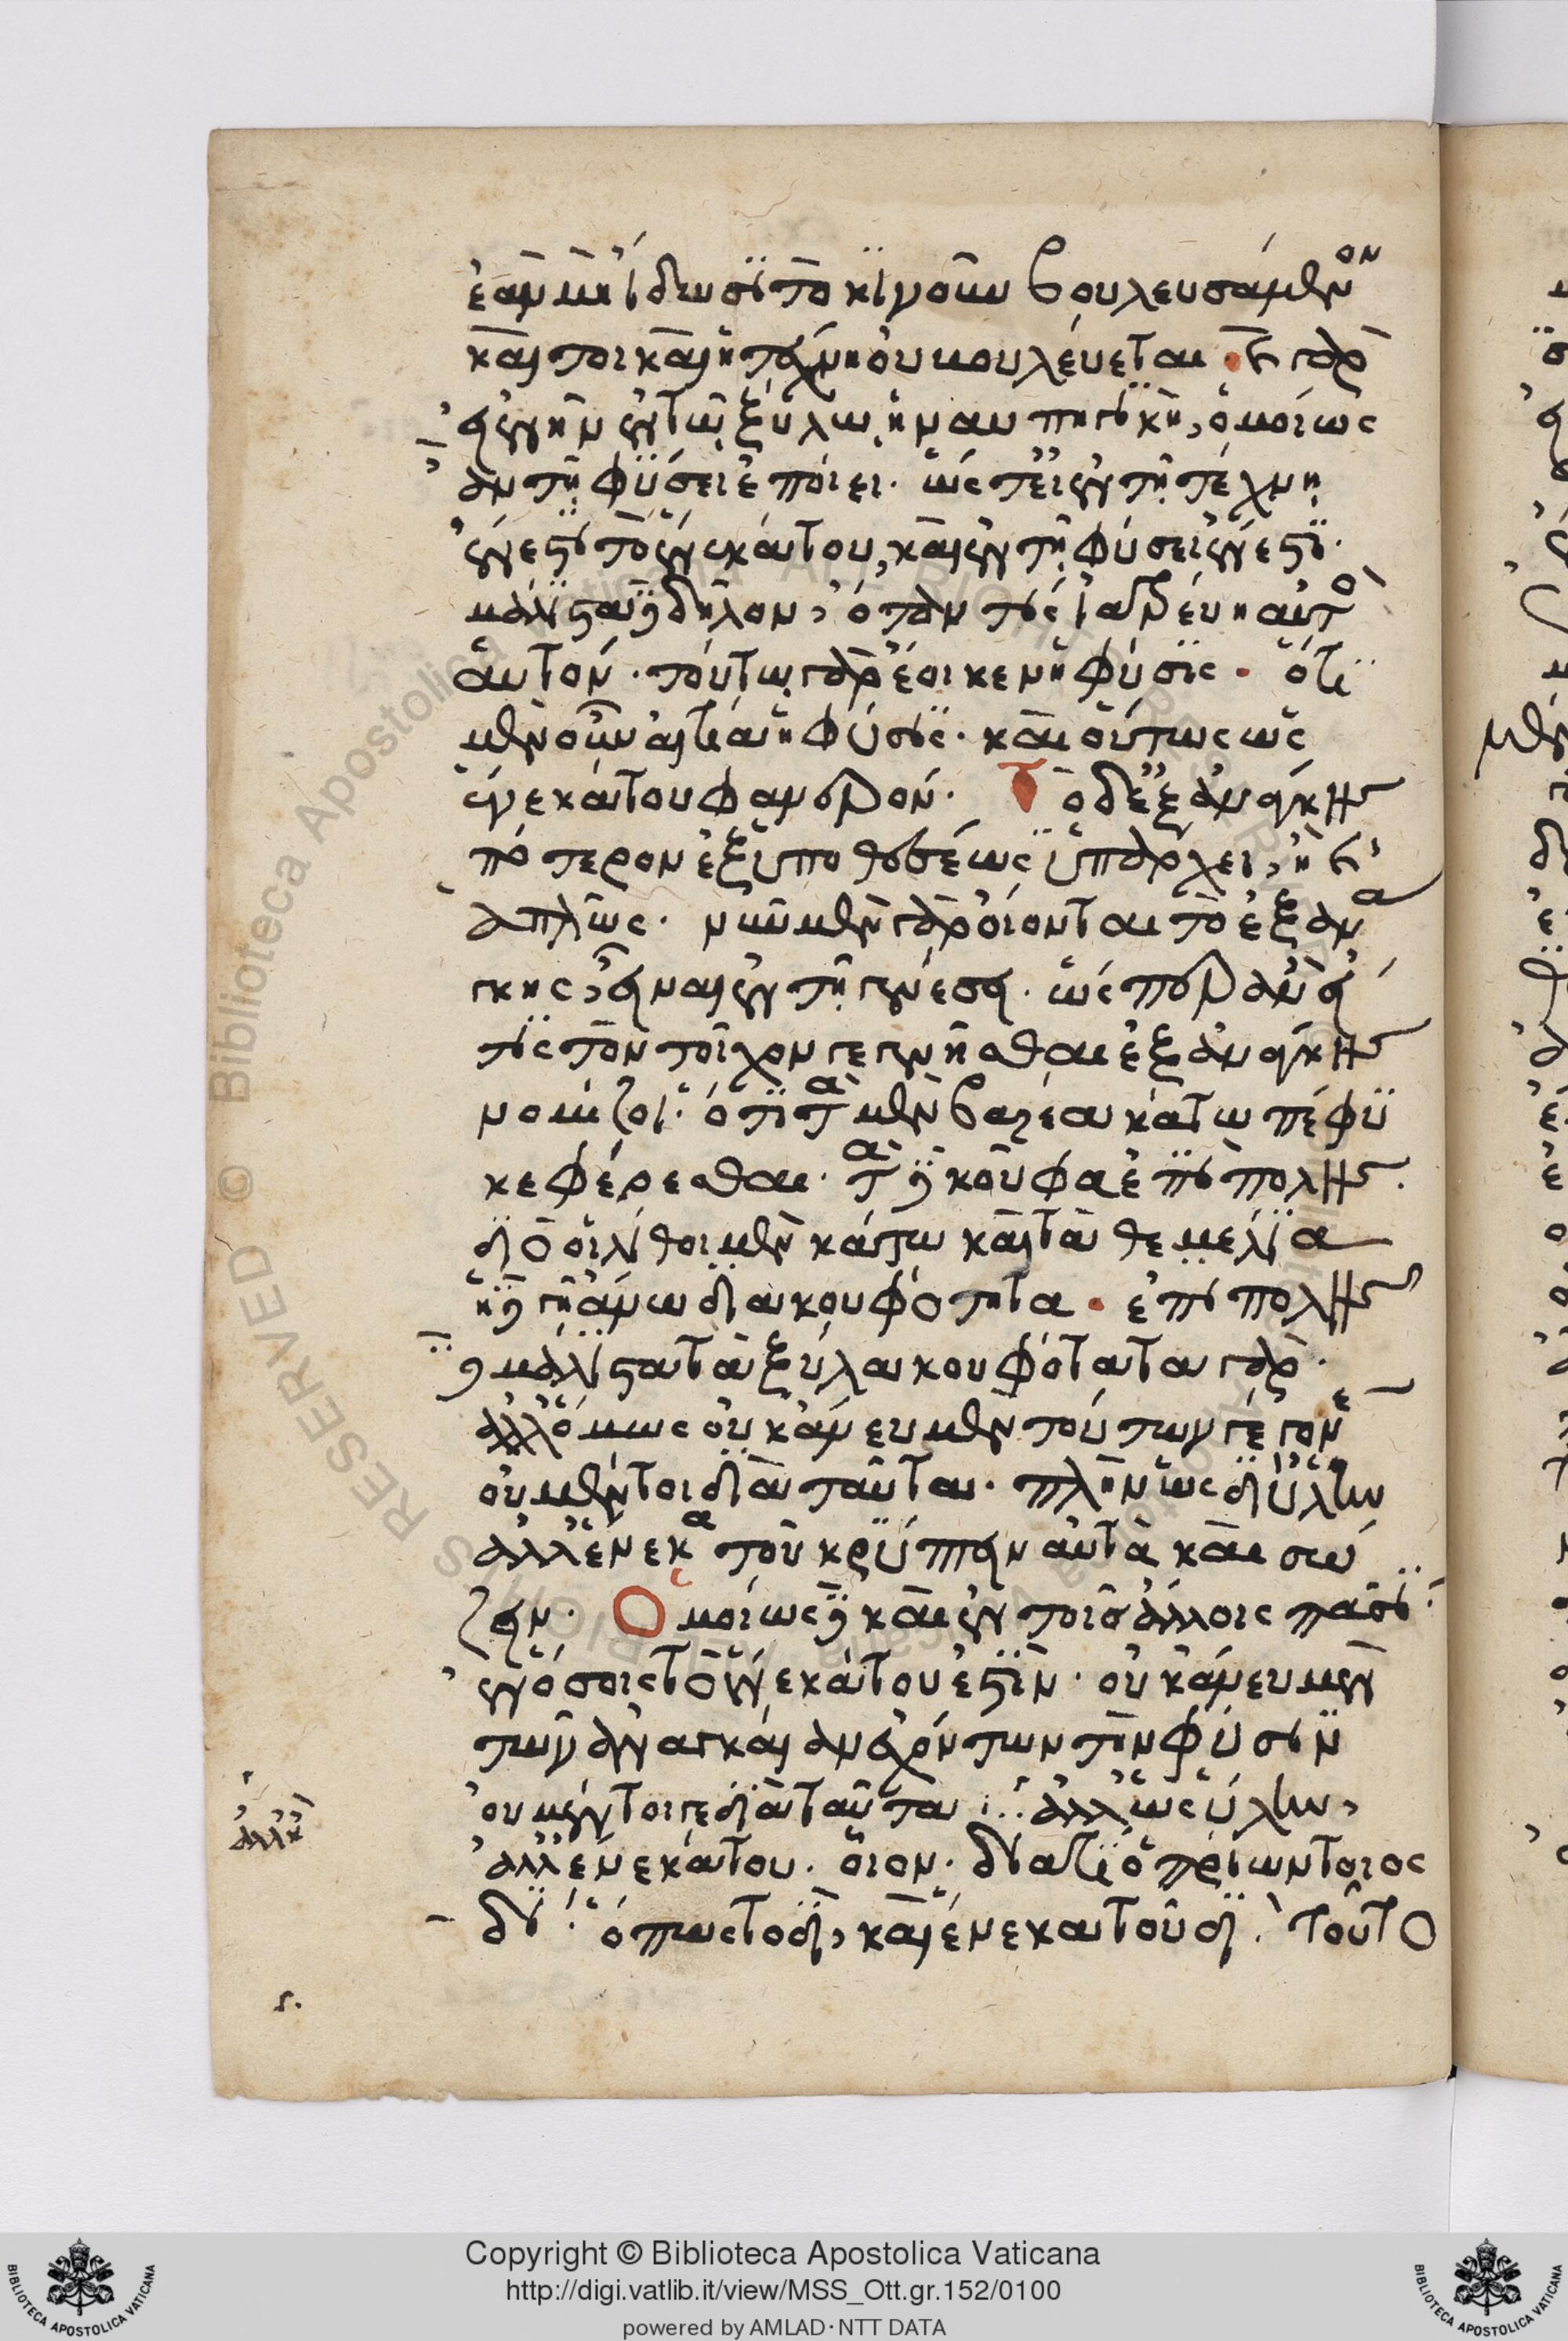 ἐὰν μὴ ἴδωσι τὸ κινοῦν βουλευσάμενον
καίτοι καὶ ἡ τέχνη οὐ βουλεύεται· εἰ γὰρ
ἐνῆν ἐν τῷ ξύλῳ ἡ ναυπηγικὴ, ὁμοίως
ἂν τῇ φύσει ἐποίει. ὥστ' εἰ ἐν τῇ τέχνῃ
ἔνεστι τὸ ἕνεκά του, καὶ ἐν τῇ φύσει ἔνεστι.
μάλιστα δὲ δῆλον, ὅταν τις ἰατρεύῃ αὐτὸς
ἑαυτόν. τούτῳ γὰρ ἔοικεν ἡ φύσις. ὅτι
μὲν οὖν αἰτία ἡ φύσις. καὶ οὕτως ὡς
ἕνεκά του φανερόν. Τὸ δὲ ἐξ ἀνάγκης
πότερον ἐξ ὑποθέσεως ὑπάρχει, ἢ καὶ
ἁπλῶς. νῦν μὲν γὰρ οἴονται τὸ ἐξ ἀνά
γκης, εἶναι ἐν τῇ γενέσει. ὥσπερ ἂν εἴ
τις τὸν τοῖχον γεγενῆσθαι ἐξ ἀνάγκης
νομίζοι. ὅτι τὰ μὲν βαρέα κάτω πέφυ
κε φέρεσθαι. τὰ δὲ κοῦφα ἐπιπολῆς.
διὸ οἱ λίθοι μὲν κάτω καὶ τὰ θεμέλια
ἡ δὲ γῆ ἄνω διὰ κουφότητα. ἐπιπολῆς
δὲ μάλιστα τὰ ξύλα κουφότατα γάρ.
ἀλλ' ὅμως οὐκ ἄνευ μὲν τούτων γέγονεν
οὐ μέντοι διὰ ταῦτα. πλὴν ὡς δι' ὕλην
ἀλλ' ἕνεκα τοῦ κρύπτειν αὐτὰ καὶ σώ
ζειν. Ὁμοίως δὲ καὶ ἐν τοῖς ἄλλοις πᾶσι.
ἐν ὅσοις τὸ ἕνεκά του ἐστίν. οὐκ ἄνευ μὲν
τῶν ἀναγκαίαν ἐχόντων τὴν φύσιν
οὐ μέντοι γε διὰ ταῦτα ... ἀλλ' ἢ ὡς ὕλην,
ἀλλ' ἕνεκά του. οἷον. διατί ὁ πρίων τοιος
δί. ὅπως τοδὶ, καὶ ἕνεκα τουδί. τοῦτο
Copyright © Biblioteca Apostolica Vaticana
http://digi.vatlib.it/view/MSS_Ott.gr.152/0100
powered by AMLAD·NTT DATA